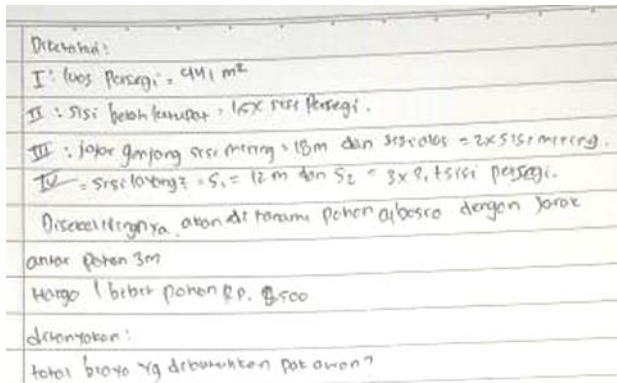 Diketahui:
I : luas Persegi = 441 m²
II : sisi belah ketupat = 1,5x sisi Persegi.
III : jajar genjang sisi miring = 18m dan sisi alas = 2x sisi miring.
IV = sisi layang² = S₁ = 12 m dan S₂ = 3x S₁ + sisi persegi.
Disekelilingnya akan di tanami pohon albasco dengan jarak
antar pohon 3m
Harga 1 bibit pohon Rp. 500
ditanyakan :
total biaya yg dibutuhkan pak awan?